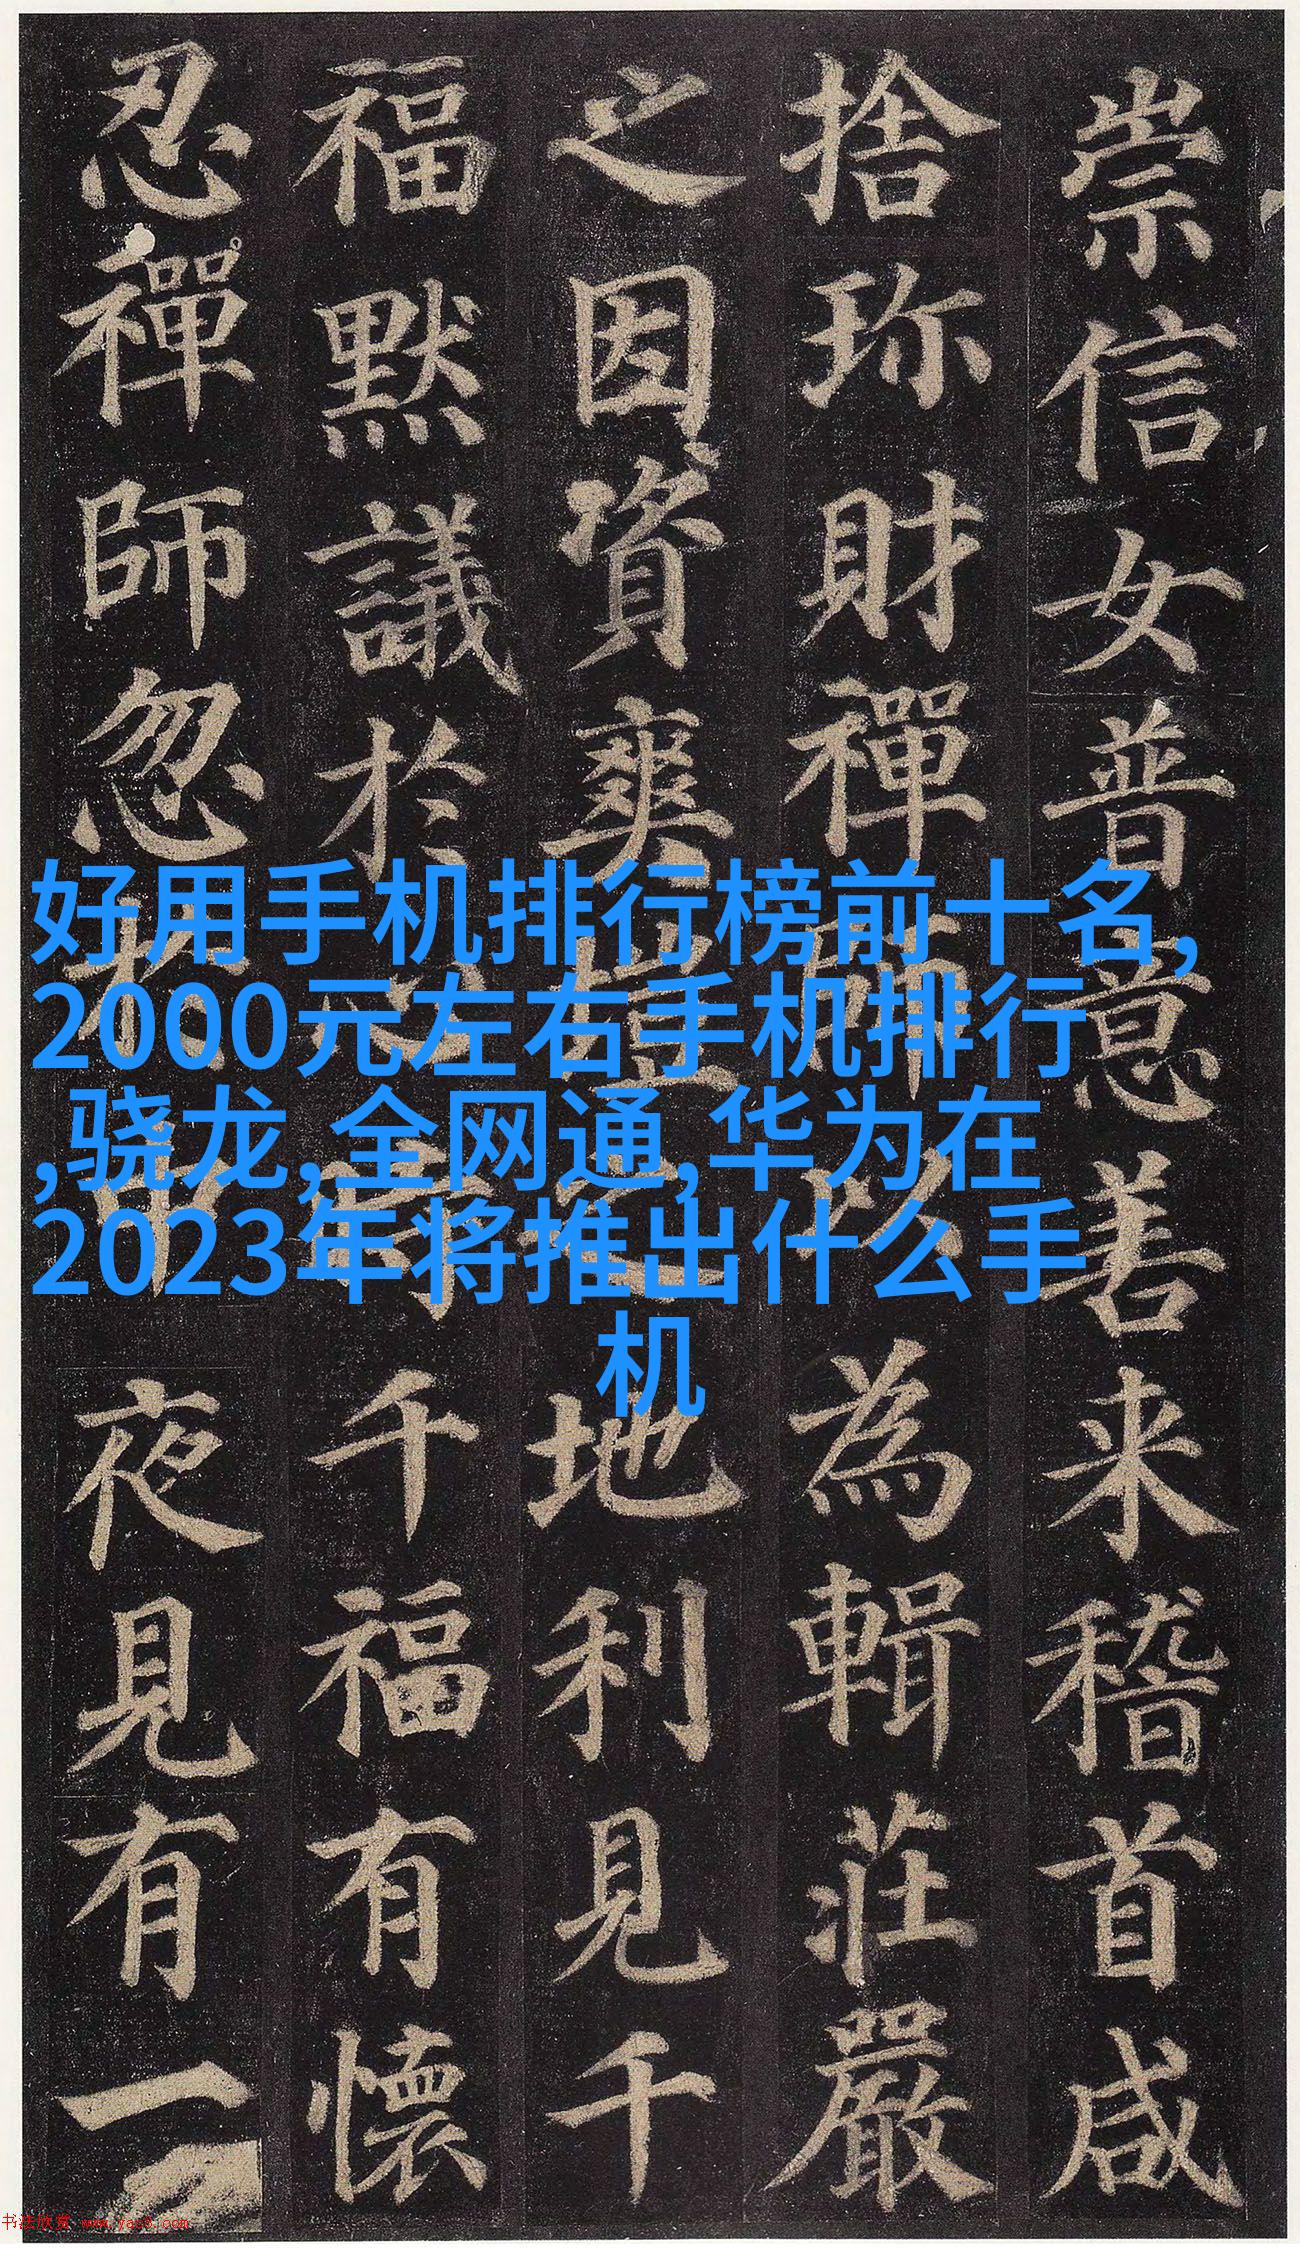 崇信女普意善来稽首咸
捨珎財禪師以為輯莊嚴
之因資爽塏之地利見千
福默議於心時千福有懷
忍禪師忽於中夜見有一
好用手机排行榜前十名,
2000元左右手机排行
,骁龙,全网通,华为在
2023年将推出什么手
机
书法欣赏 www.yac8.com